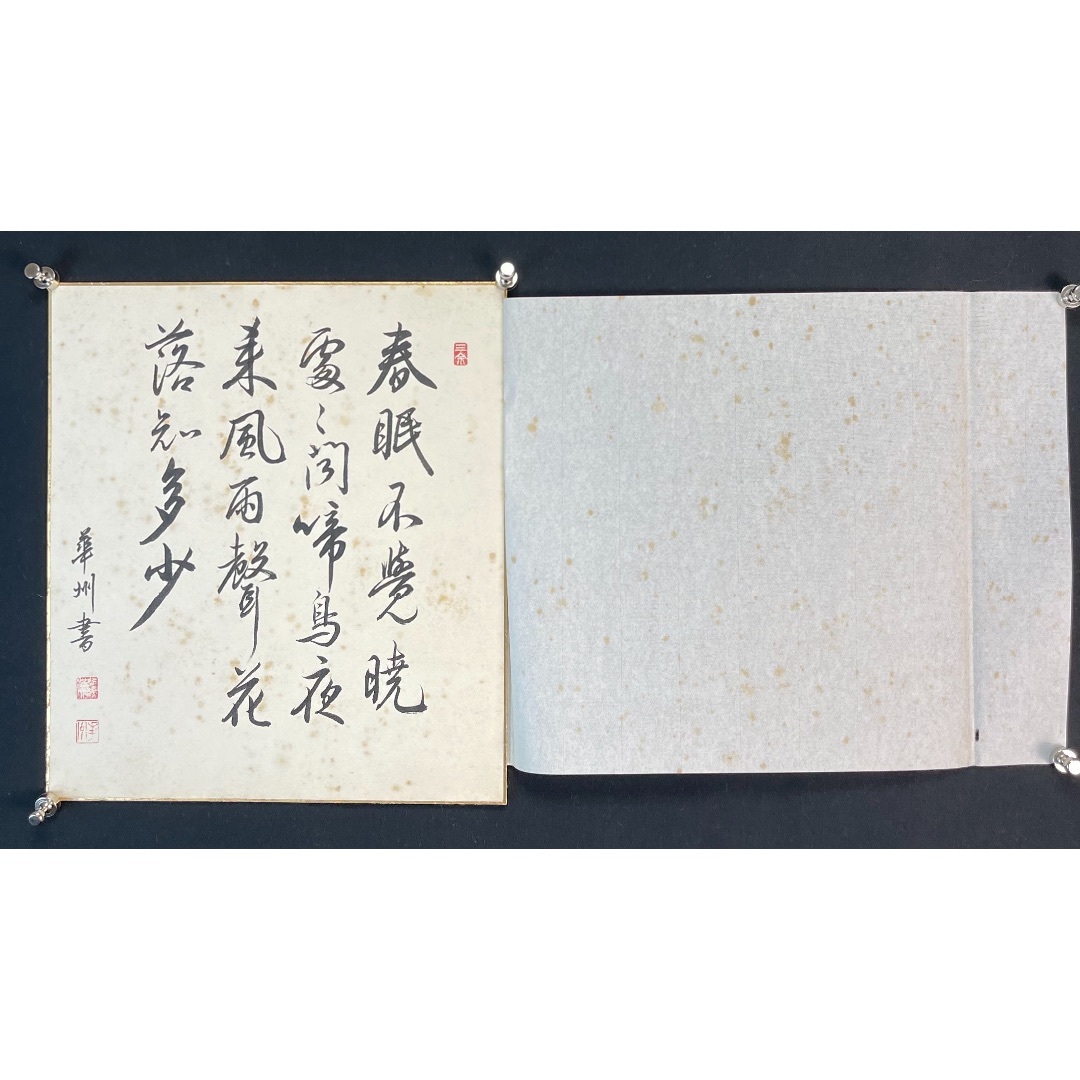 三余
春眠不覺曉
處〻聞啼鳥夜
来風雨聲花
落知多少
華州書